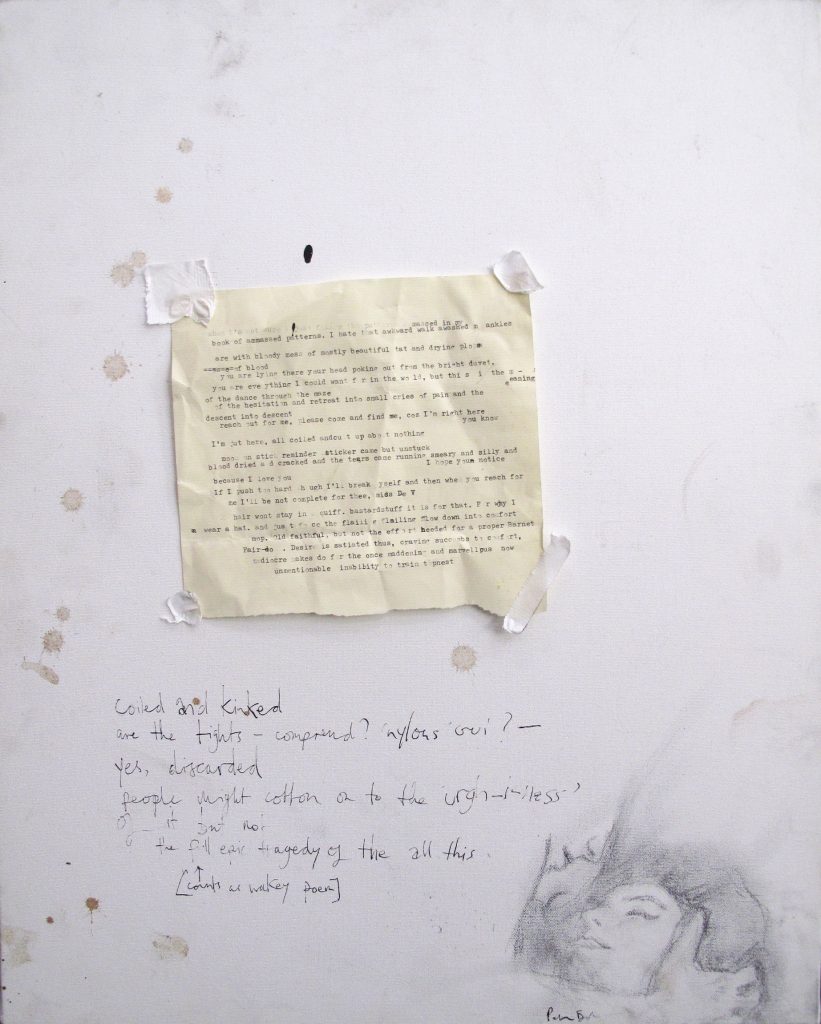 I'm not sure smaged in my
book of ammassed patterns. I hate that awkward walk awashed ankles
are with bloody mess of mostly beautiful tat and drying
of blood
you are lying there your head poking out from the bright duvet.
you are eve ything I could want f r in the wo ld, but thi s i the m -
eaning
of the dance through the maze
of the hesitation and retreat into small cries of pain and the
descent into descent
reach out for me, please come and find me, cos I'm right here
you know
I'm jut here, all coiled andcu t up abo t nothing
stick reminder sticker came but unstuck
blood dried a d cracked and the tears came running smeary and silly and
I hope your notice
because I love you
If I push too hard I'll break yself and then whe you reach for
me I'll be not complete for thee, De V
hair wont stay in quiff. bastardstuff it is for that. F r why I
wear a hat. and flailing flow down into comfort
mop, old faithful, but not the effort needed for a proper Barnet
Fair-do . Desire is satiated thus, craving succumbs to comfort,
mediocre makes do f r the once maddening and marvellous now
unmentionable inability to train topnest
coiled and kinked
are the tights – comprend? 'nylons' 'oui'? –
yes, discarded
people might cotton on to the
it but not
the epic tragedy of the all this.
[counts as poem]